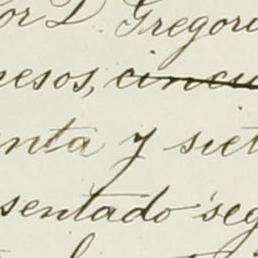 por D. Gregorio
pesos, cincu
enta y siet
sentado seg